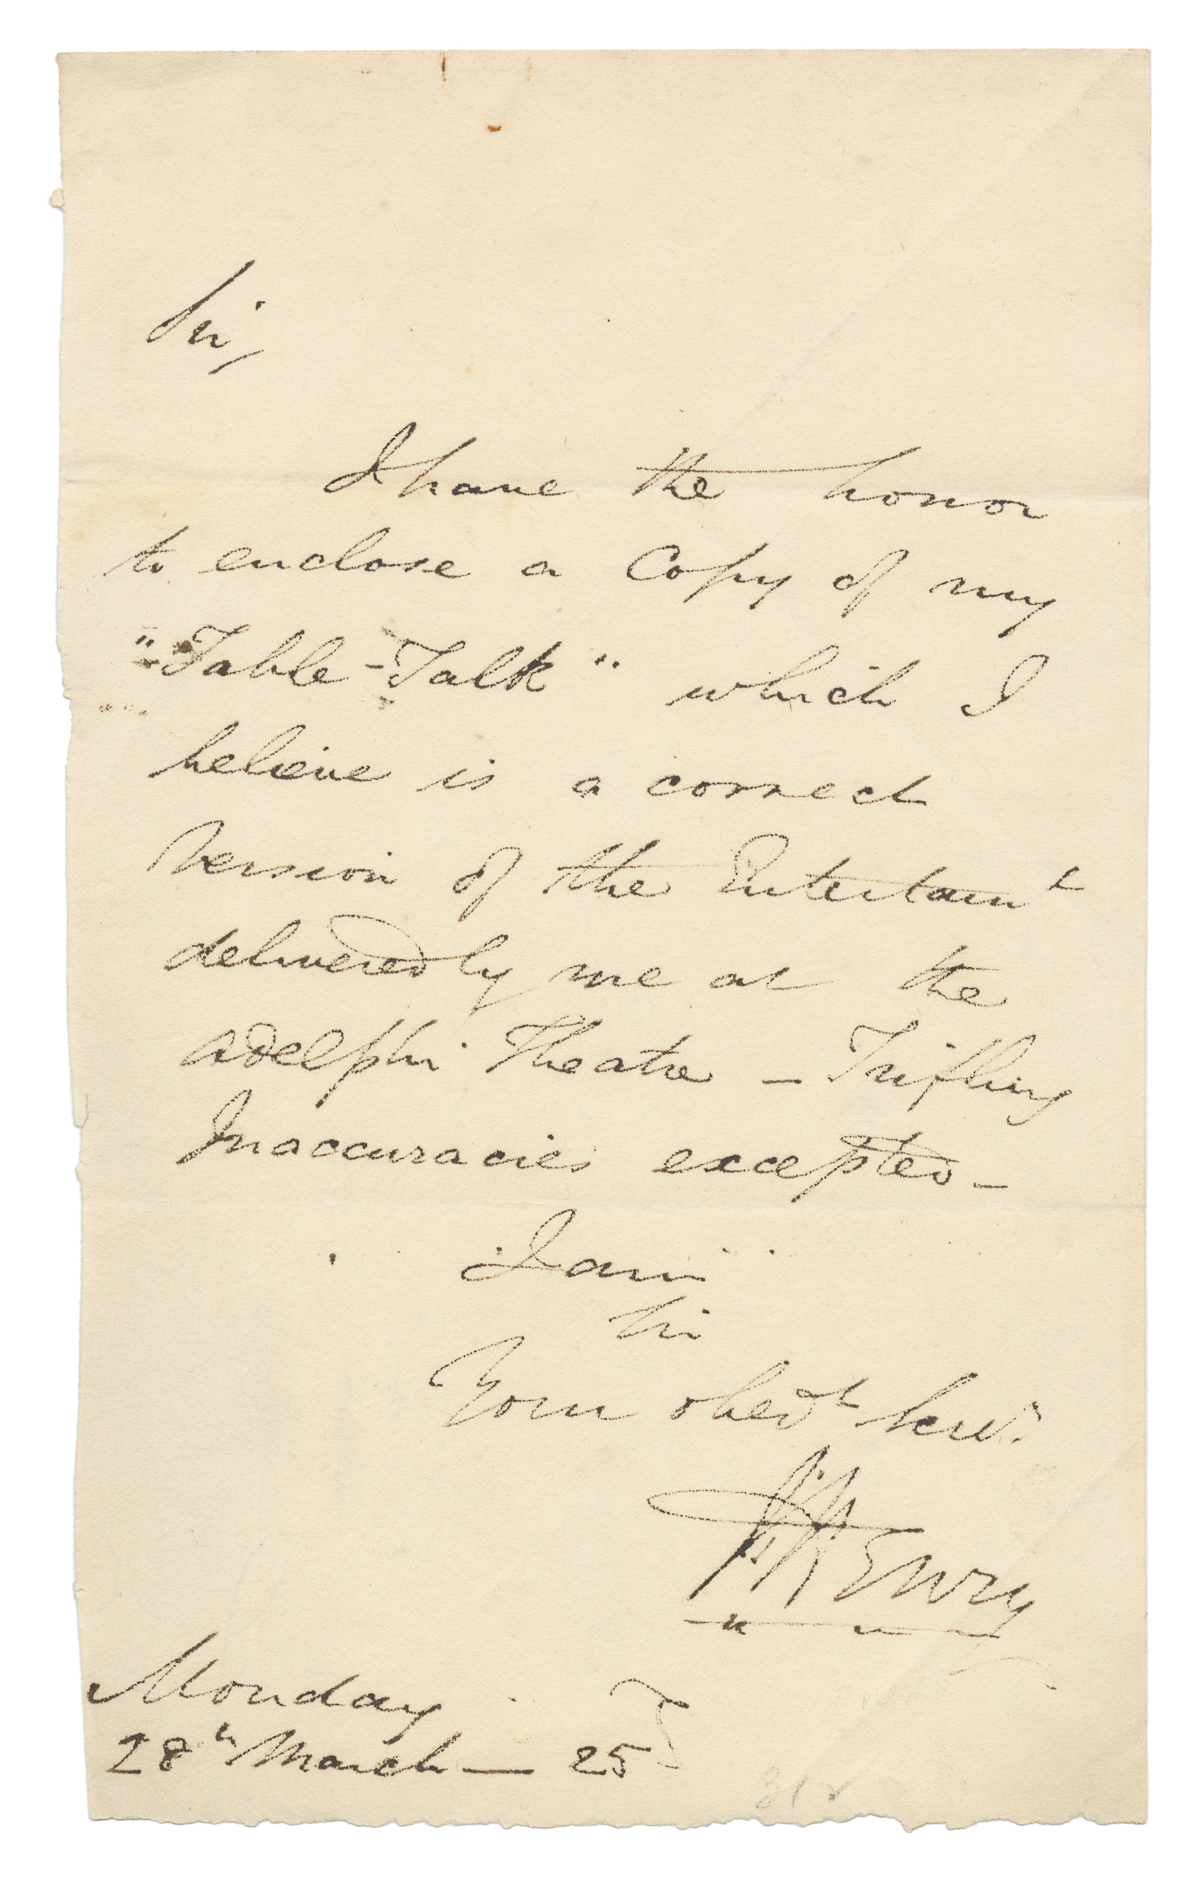 Sir,
I have the honor
to enclose a Copy of my
"Table-Talk" which I
believe is a correct
Version of the Entertaint
delivered by me at the
Adelphi Theatre — Trifling
Inaccuracies excepted —
I am
Sir
Your obedt Servt
Henry
Monday
28th March — 25